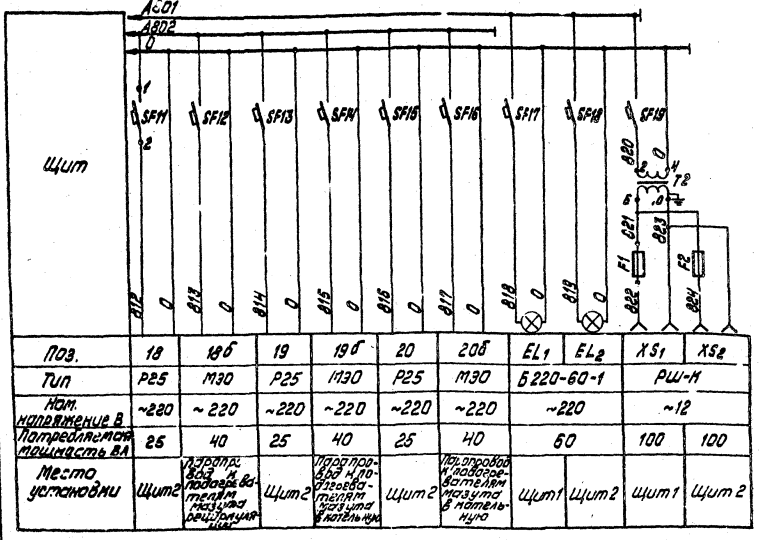 А801
А802
0
1
SF11 SF12 SF13 SF14 SF15 SF16 SF17 SF18 SF19
2
Щит
820 0
2 4
Т2
6 0
821 823
F1 F2
812 0 813 0 814 0 815 0 816 0 817 0 818 0 819 0 822 824
Поз. 18 18б 19 19б 20 20б EL1 EL2 XS1 XS2
Тип Р25 М30 Р25 М30 Р25 М30 Б220-60-1 РШ-Н
Ном. напряжение В ~220 ~220 ~220 ~220 ~220 ~220 ~220 ~12
Потребляемая мощность ВА 25 40 25 40 25 40 60 100 100
Место установки
Щит2
Паропровод к подогревателям мазута
Щит2
Паропровод к подогревателям мазута в котельную
Щит 2
Паропровод к подогревателям мазута в котельную
Щит1
Щит2
Щит 1
Щит 2